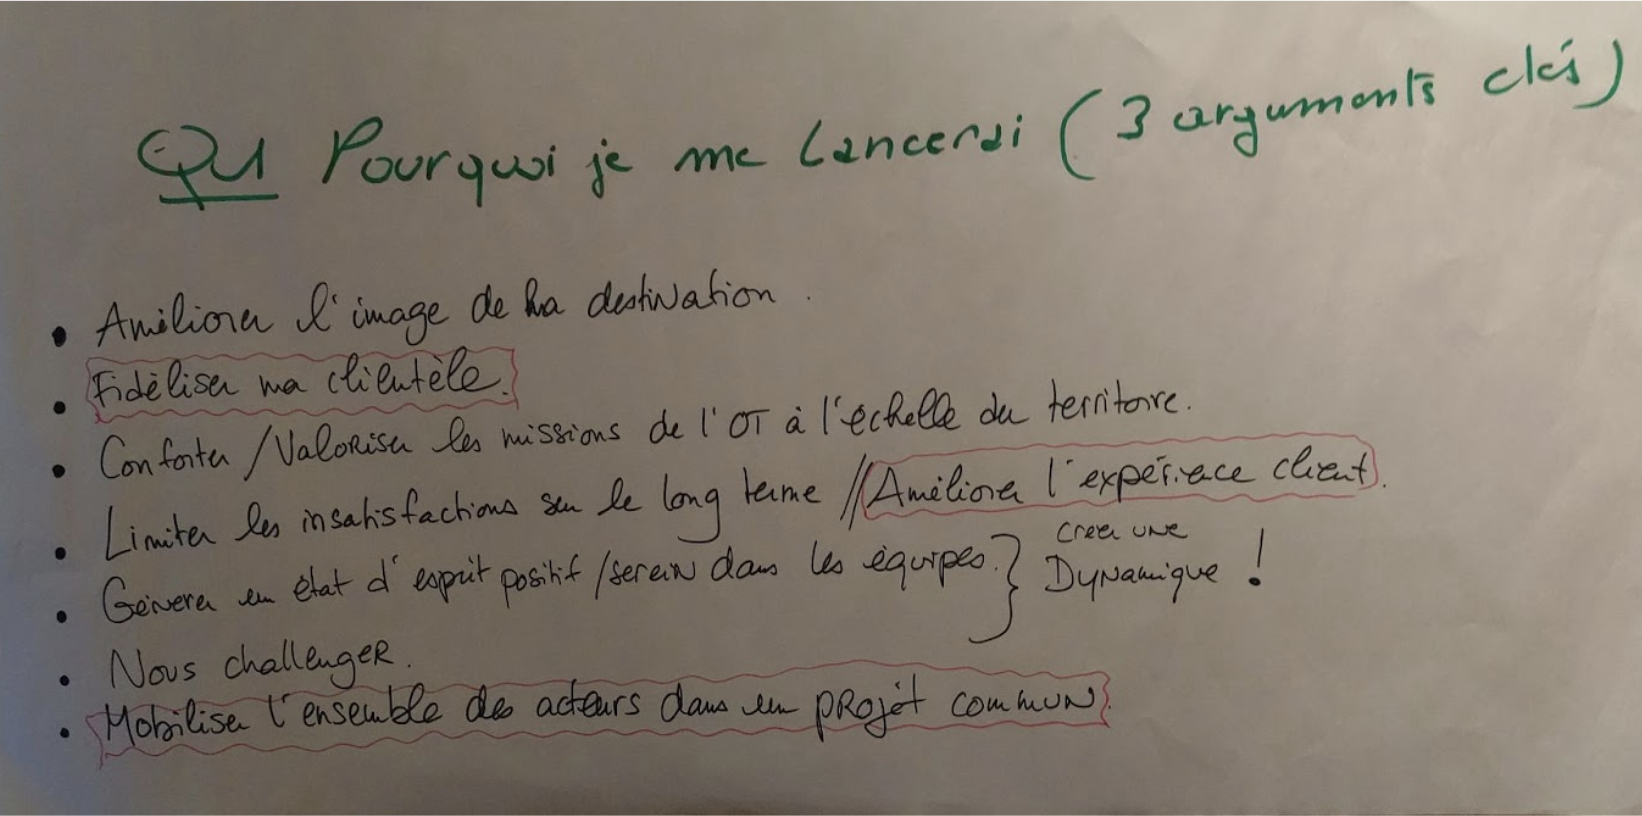 QU Pourquoi je me Lancerai (3 arguments clés)
• Améliorer l'image de ma destination.
• Fidéliser ma clientèle.
• Conforter / Valoriser les missions de l'OT à l'échelle du territoire.
• Limiter les insatisfactions sur le long terme // Améliorer l'expérience client.
• Générer un état d'esprit positif / serein dans les équipes. } Créer une Dynamique !
• Nous challenger.
• Mobiliser l'ensemble des acteurs dans un projet commun.